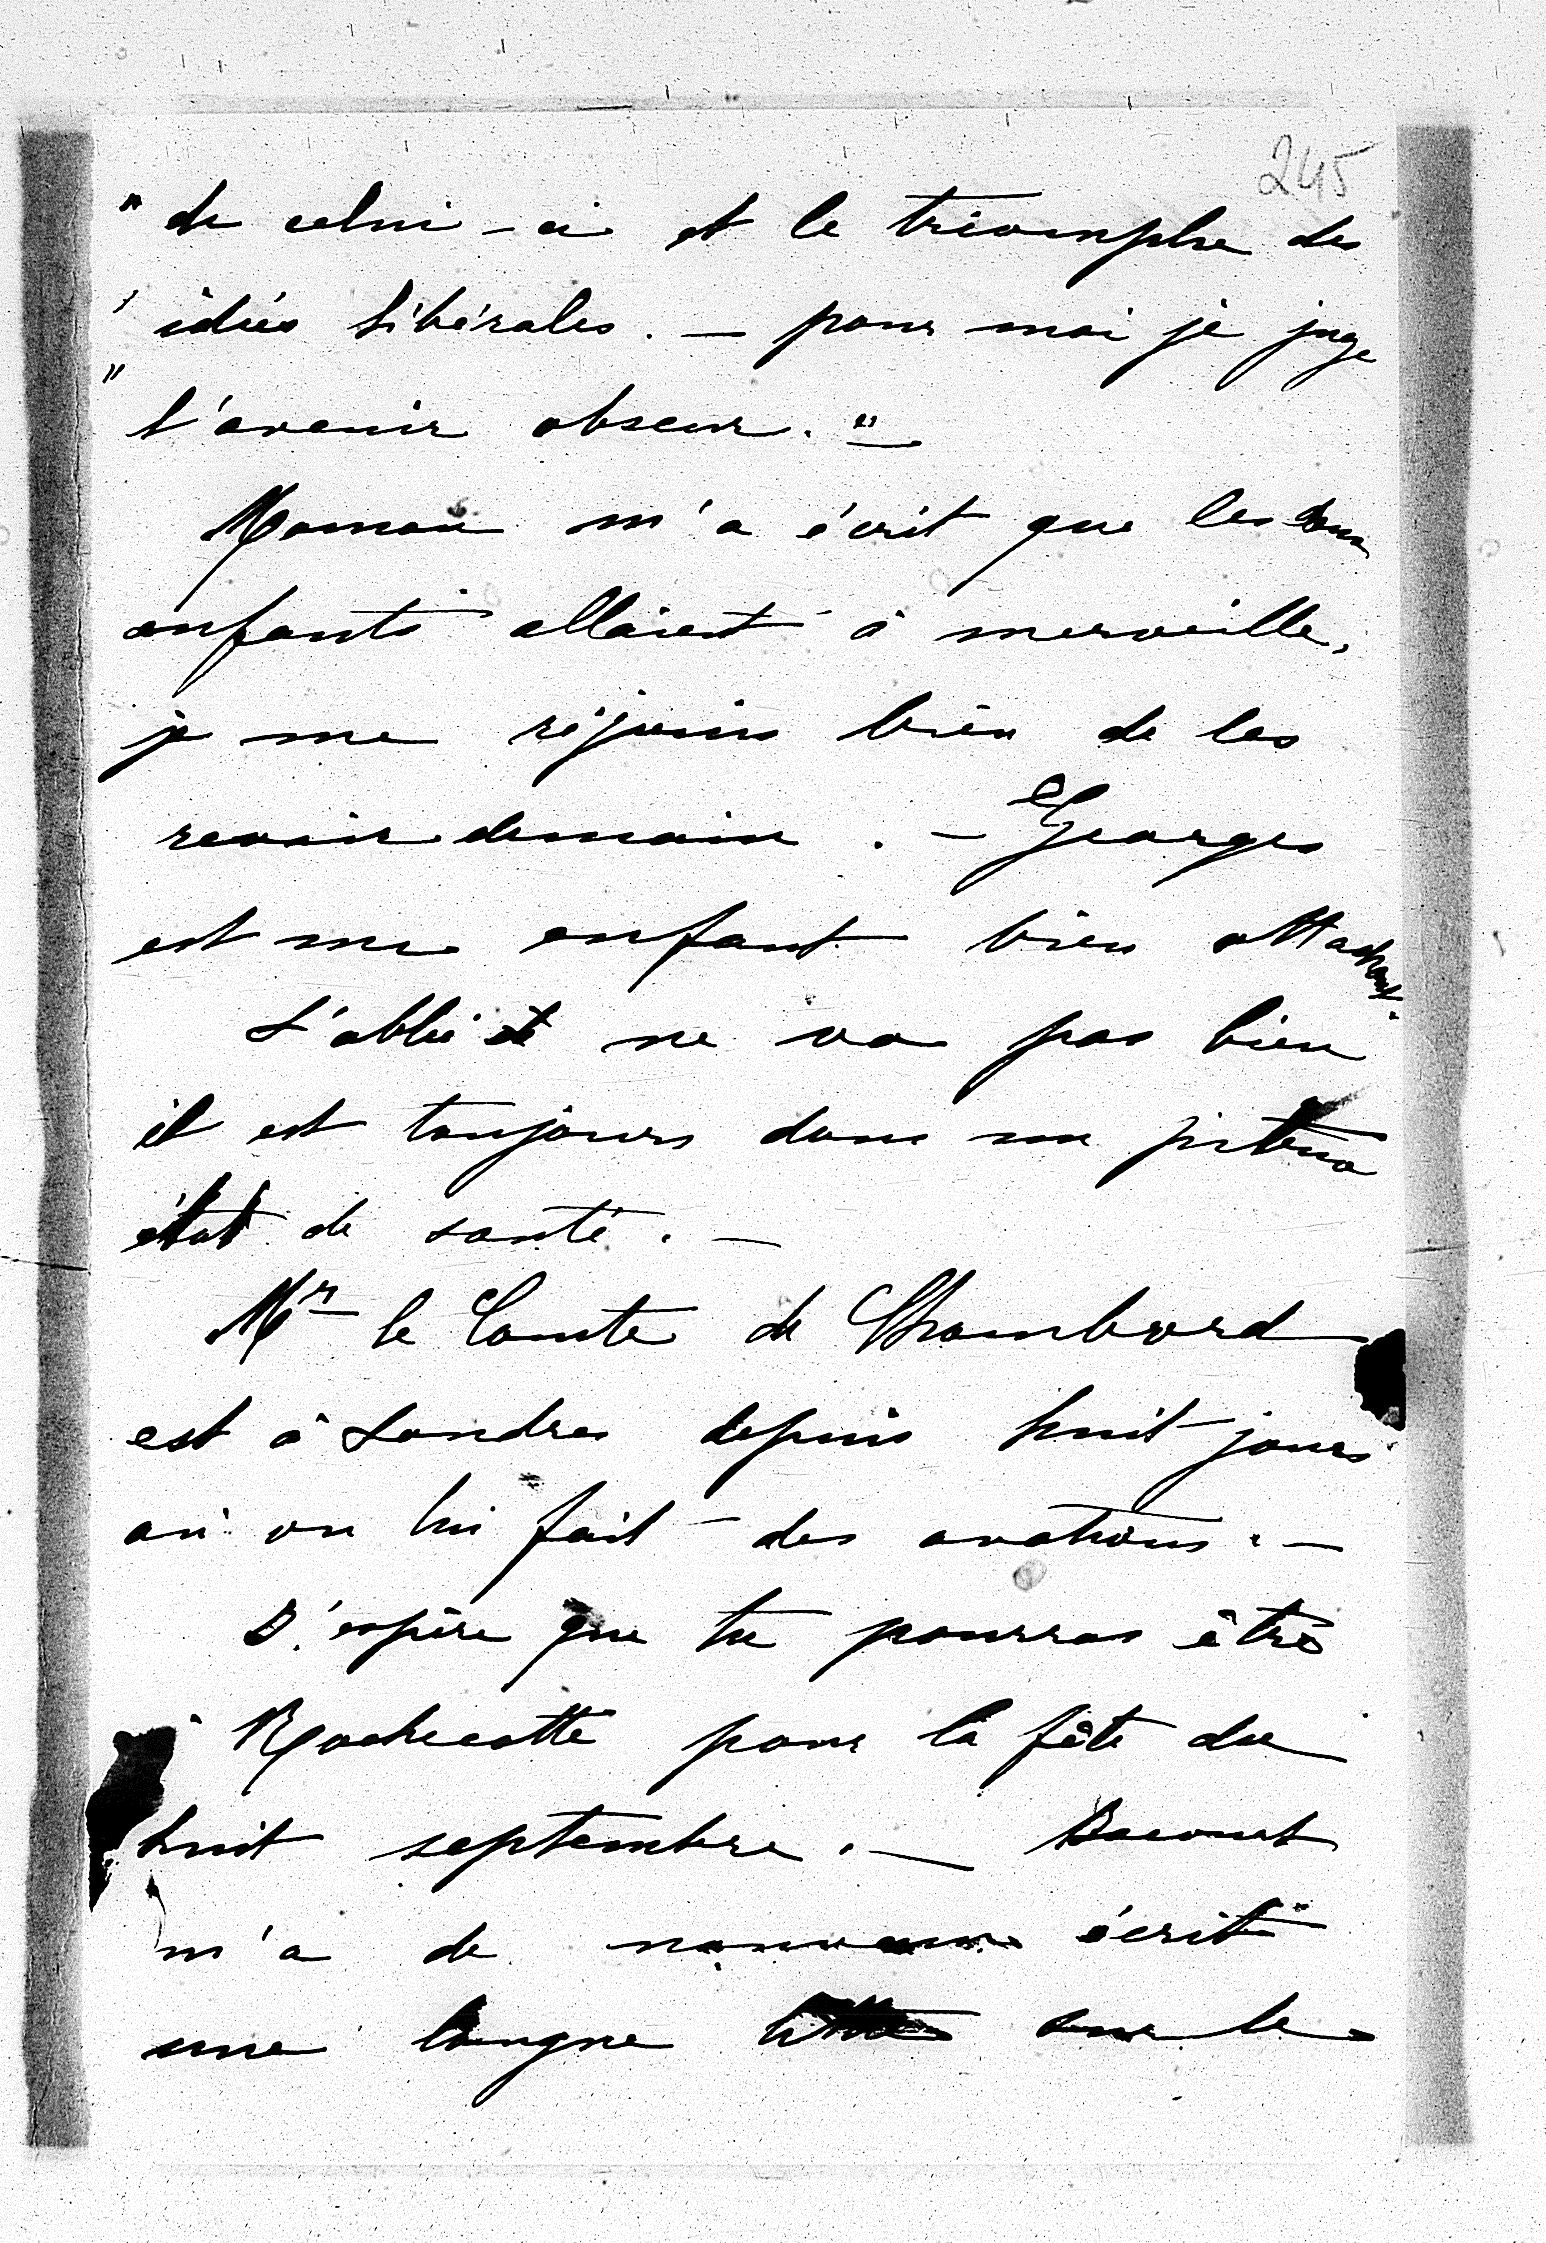 245
" de celui-ci et le triomphe des
" idées libérales. — pour moi je juge
" l'avenir obscur. "
Maman m'a écrit que les deux
enfants allaient à merveille,
je me réjouis bien de les
revoir demain. — Georges
est un enfant bien attachant.
L'abbé ne va pas bien
il est toujours dans un piteux
état de santé. —
Mr le Comte de Chambord
est à Londres depuis huit jours
où on lui fait des ovations. —
J'espère que tu pourras être
à Rochecotte pour la fête du
huit septembre. — Bacourt
m'a de nouveau écrit
une longue lettre sur le